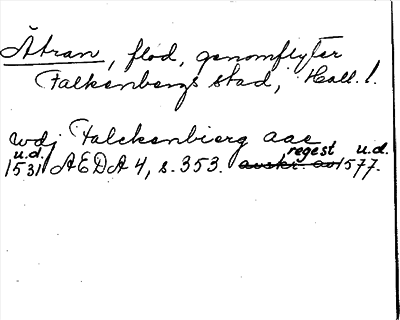 Ätran, flod, genomflyter
Falkenbergs stad, Hall. l.
wdj Falckenbierg aae
u.d. regest u.d.
1531 AEDA 4, s. 353. avskr. av 1577.